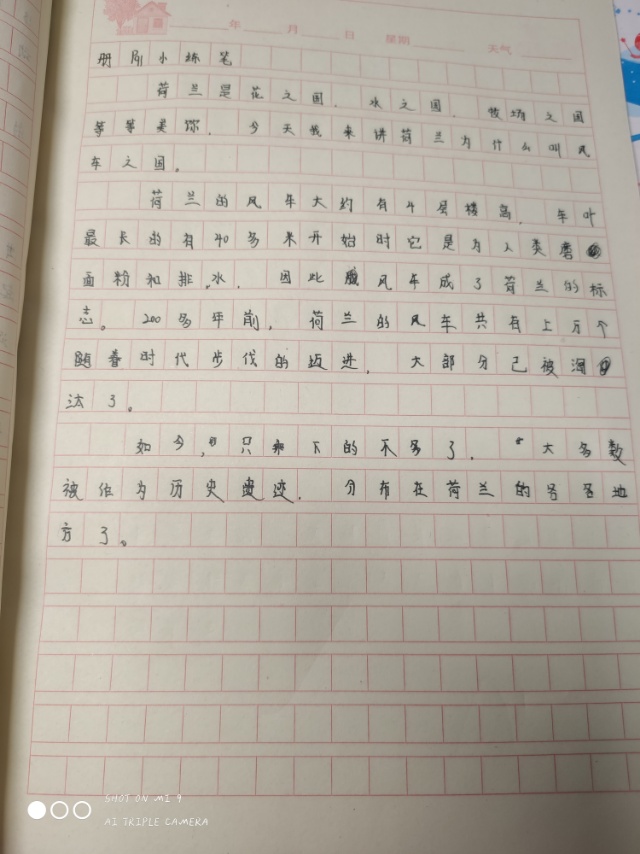 年 月 日 星期 天气
册刷小练笔
荷兰是花之国,水之国,牧场之国
等等美称,今天我来讲荷兰为什么叫风
车之国。
荷兰的风车大约有4层楼高,车叶
最长的有40多米开始时它是为人类磨
面粉和排水,因此风车成了荷兰的标
志。200多年前,荷兰的风车共有上万个
随着时代步伐的迈进,大部分已被淘
汰了。
如今,只下的不多了,大多数
被作为历史遗迹,分布在荷兰的各各地
方了。
SHOT ON MI 9
AI TRIPLE CAMERA